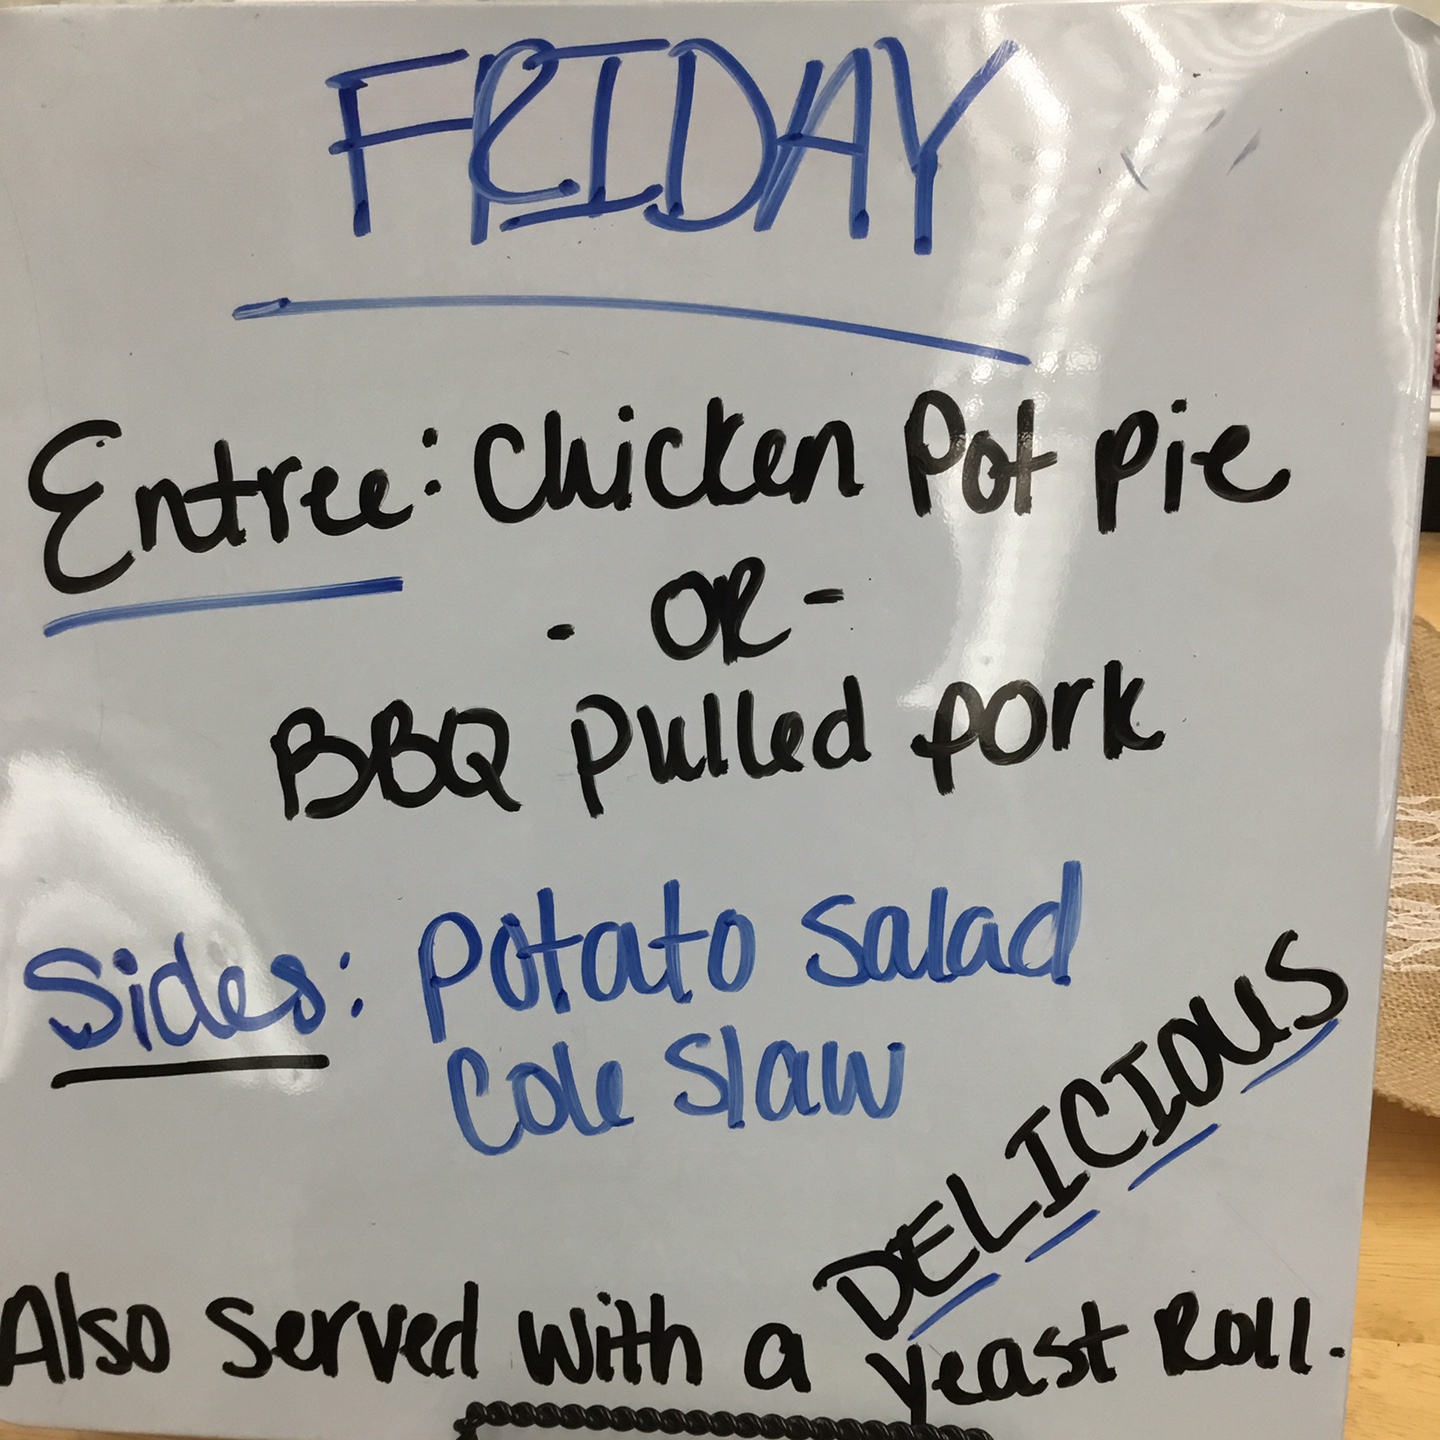 FRIDAY
Entree: Chicken Pot Pie
- OR -
BBQ Pulled pork
Sides: Potato Salad
Cole Slaw
DELICIOUS
Also Served with a yeast Roll.